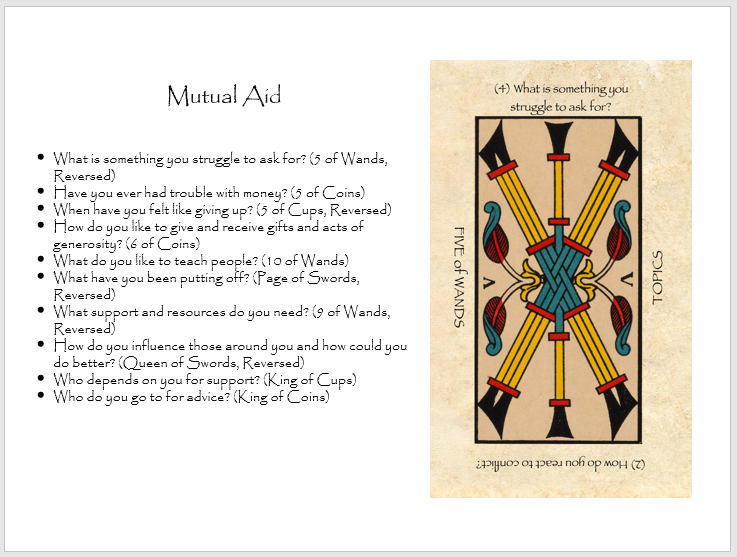 Mutual Aid
• What is something you struggle to ask for? (5 of Wands,
Reversed)
• Have you ever had trouble with money? (5 of Coins)
• When have you felt like giving up? (5 of Cups, Reversed)
• How do you like to give and receive gifts and acts of
generosity? (6 of Coins)
• What do you like to teach people? (10 of Wands)
• What have you been putting off? (Page of Swords,
Reversed)
• What support and resources do you need? (9 of Wands,
Reversed)
• How do you influence those around you and how could you
do better? (Queen of Swords, Reversed)
• Who depends on you for support? (King of Cups)
• Who do you go to for advice? (King of Coins)
(4) What is something you
struggle to ask for?
FIVE of WANDS
V
V
TOPICS
(2) How do you react to conflict?